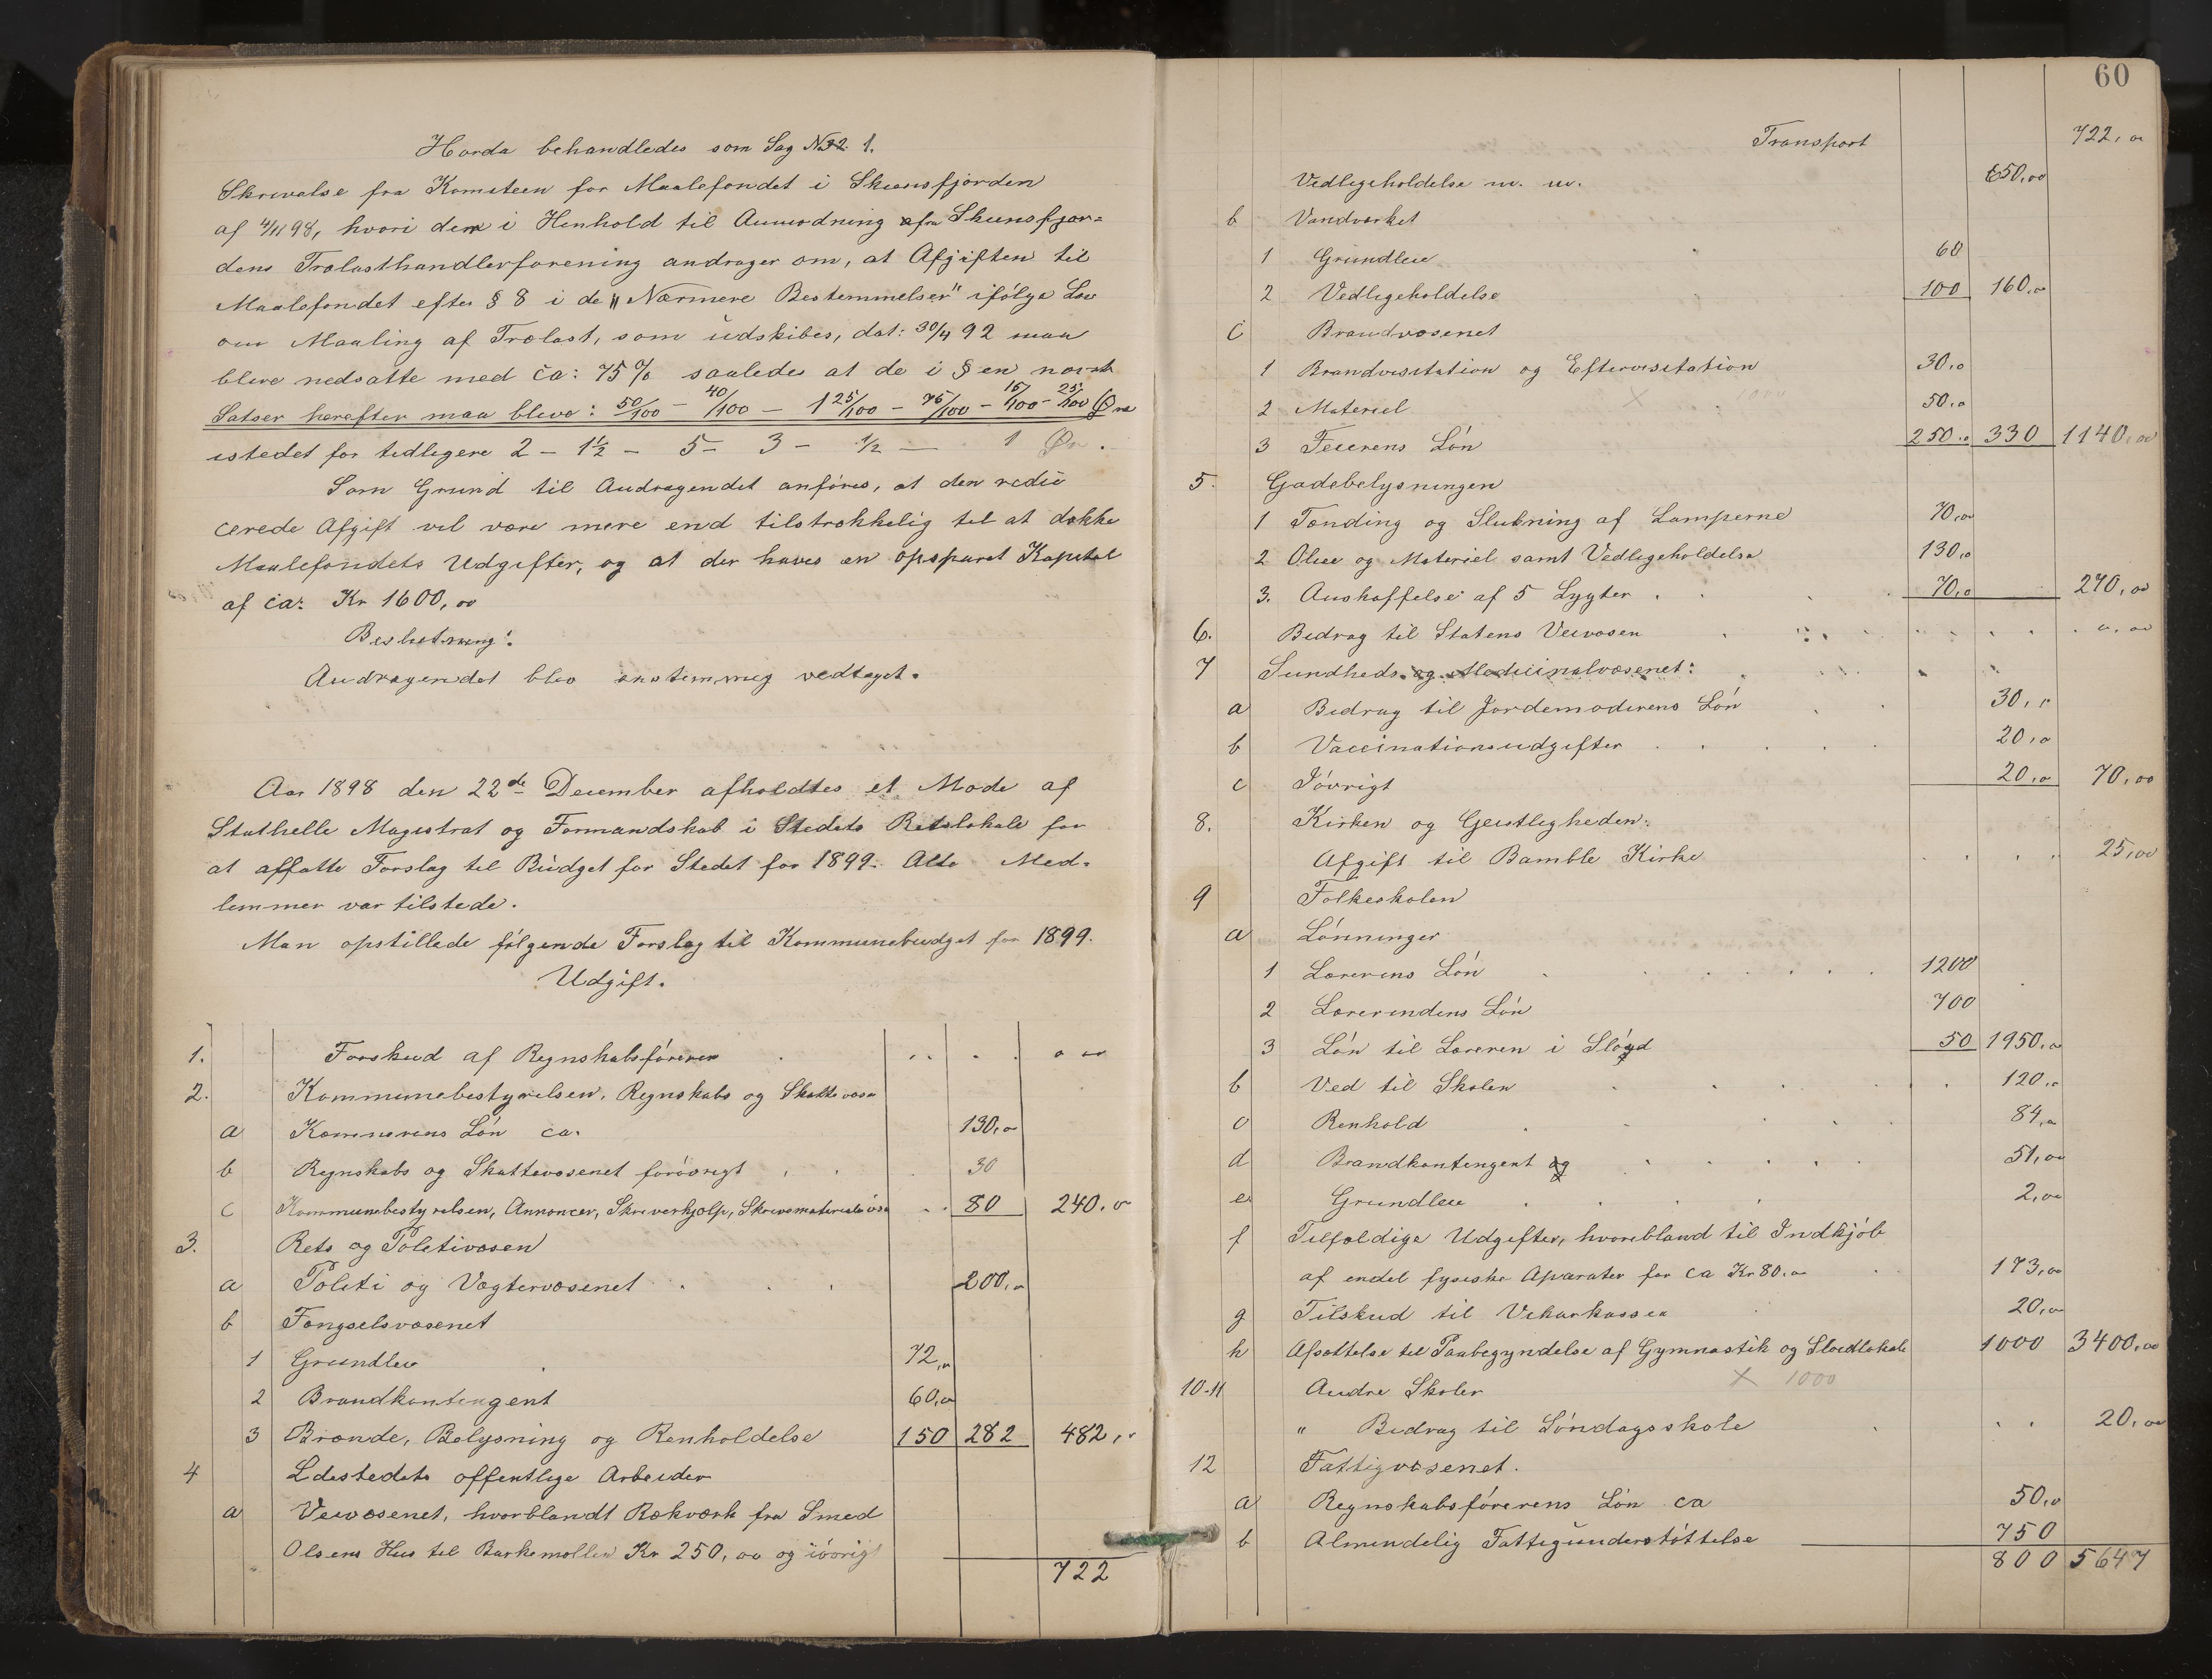 Herda behandledes som Sag No 32. 1.
Skrivelse fra Komiteen for Maalefondet i Skiensfjorden
af 4/11 98, hvori den i Henhold til Anmodning fra Skiensfjor-
dens Trælasthandlerforening andrager om, at Afgiften til
Maalefondet efter § 8 i de "Nærmere Bestemmelser" ifølge Lov
om Maaling af Trælast, som udskibes, dat: 30/4 92 maa
blive nedsatte med ca: 75 % saaledes at de i §en nævnte
Satser herefter maa blive: 50/100 - 40/100 - 1 25/100 - 75/100 - 15/100 - 25/100 Øre
istedet for tidligere 2 - 1½ - 5 - 3 - ½ - 1 Øre.
Som Grund til Andragendet anføres, at den redu
cerede Afgift vil være mere end tilstrækkelig til at dække
Maalefondets Udgifter, og at der haves en opsparet Kapital
af ca: Kr 1600,00
Beslutning:
Andragendet blev enstemmig vedtaget.
Aar 1898 den 22de December afholdtes et Møde af
Stathelle Magistrat og Formandskab i Stedets Retslokale for
at affatte Forslag til Budget for Stedet for 1899. Alle Med-
lemmer var tilstede.
Man opstillede følgende Forslag til Kommunebudget for 1899.
Udgift.
1. Forskud af Regnskabsføreren . . . . " "
2. Kommunebestyrelsen, Regnskabs og Skattevæsen
a Kæmnerens Løn ca. 130,00
b Regnskabs og Skattevæsenet forøvrigt 30
c Kommunebestyrelsen, Annoncer, Skriverhjælp, Skrivematerialer 80 240.00
3. Rets og Politivæsen
a Politi og Vægtervæsenet 200,00
b Fængselsvæsenet
1 Grundleie 72,00
2 Brandkontingent 60,00
3 Brænde, Belysning og Renholdelse 150 282 482,00
4 Ldestedets offentlige Arbeider
a Veivæsenet, hvorblandt Rækværk fra Smed
Olsens Hus til Barkemøllen Kr 250,00 og iøvrigt
722
60
Transport 722,00
Vedligeholdelse m. m. 650,00
b Vandværket
1 Grundleie 60
2 Vedligeholdelse 100 160,00
c Brandvæsenet
1 Brandvisitation og Eftervisitation 30,0
2 Materiel 50,0
3 Feierens Løn 250,0 330 1140,00
5. Gadebelysningen
1 Tænding og Slukning af Lamperne 70,00
2 Olie og Materiel samt Vedligeholdelse 130,0
3. Anskaffelse af 5 Lygter . 70,0 270,00
6. Bidrag til Statens Veivæsen . . . . " "
7 Sundheds og Medicinalvæsenet:
a Bidrag til Jordemoderens Løn 30,"
b Vaccinationsudgifter 20,0
c Iøvrigt 20,0 70,00
8. Kirken og Geistligheden:
Afgift til Bamble Kirke 25,00
9 Folkeskolen
a Lønninger
1 Lærerens Løn 1200
2 Lærerindens Løn 700
3 Løn til Læreren i Sløyd 50 1950,00
b Ved til Skolen 120,0
c Renhold 84,00
d Brandkontingent og 51,00
e Grundleie 2,00
f Tilfældige Udgifter, hvoriblandt til Indkjøb
af endel fysiske Aparater for ca Kr 80.00 173,00
g Tilskud til Vikarkassen 20,00
h Afsættelse til Paabegyndelse af Gymnastik og Sløidlokale 1000 3400,00
10-11 Andre Skoler X 1000
" Bidrag til Søndagsskole 20,00
12 Fattigvæsenet.
a Regnskabsførerens Løn ca 50,0
b Almindelig Fattigunderstøttelse 750
800 5647